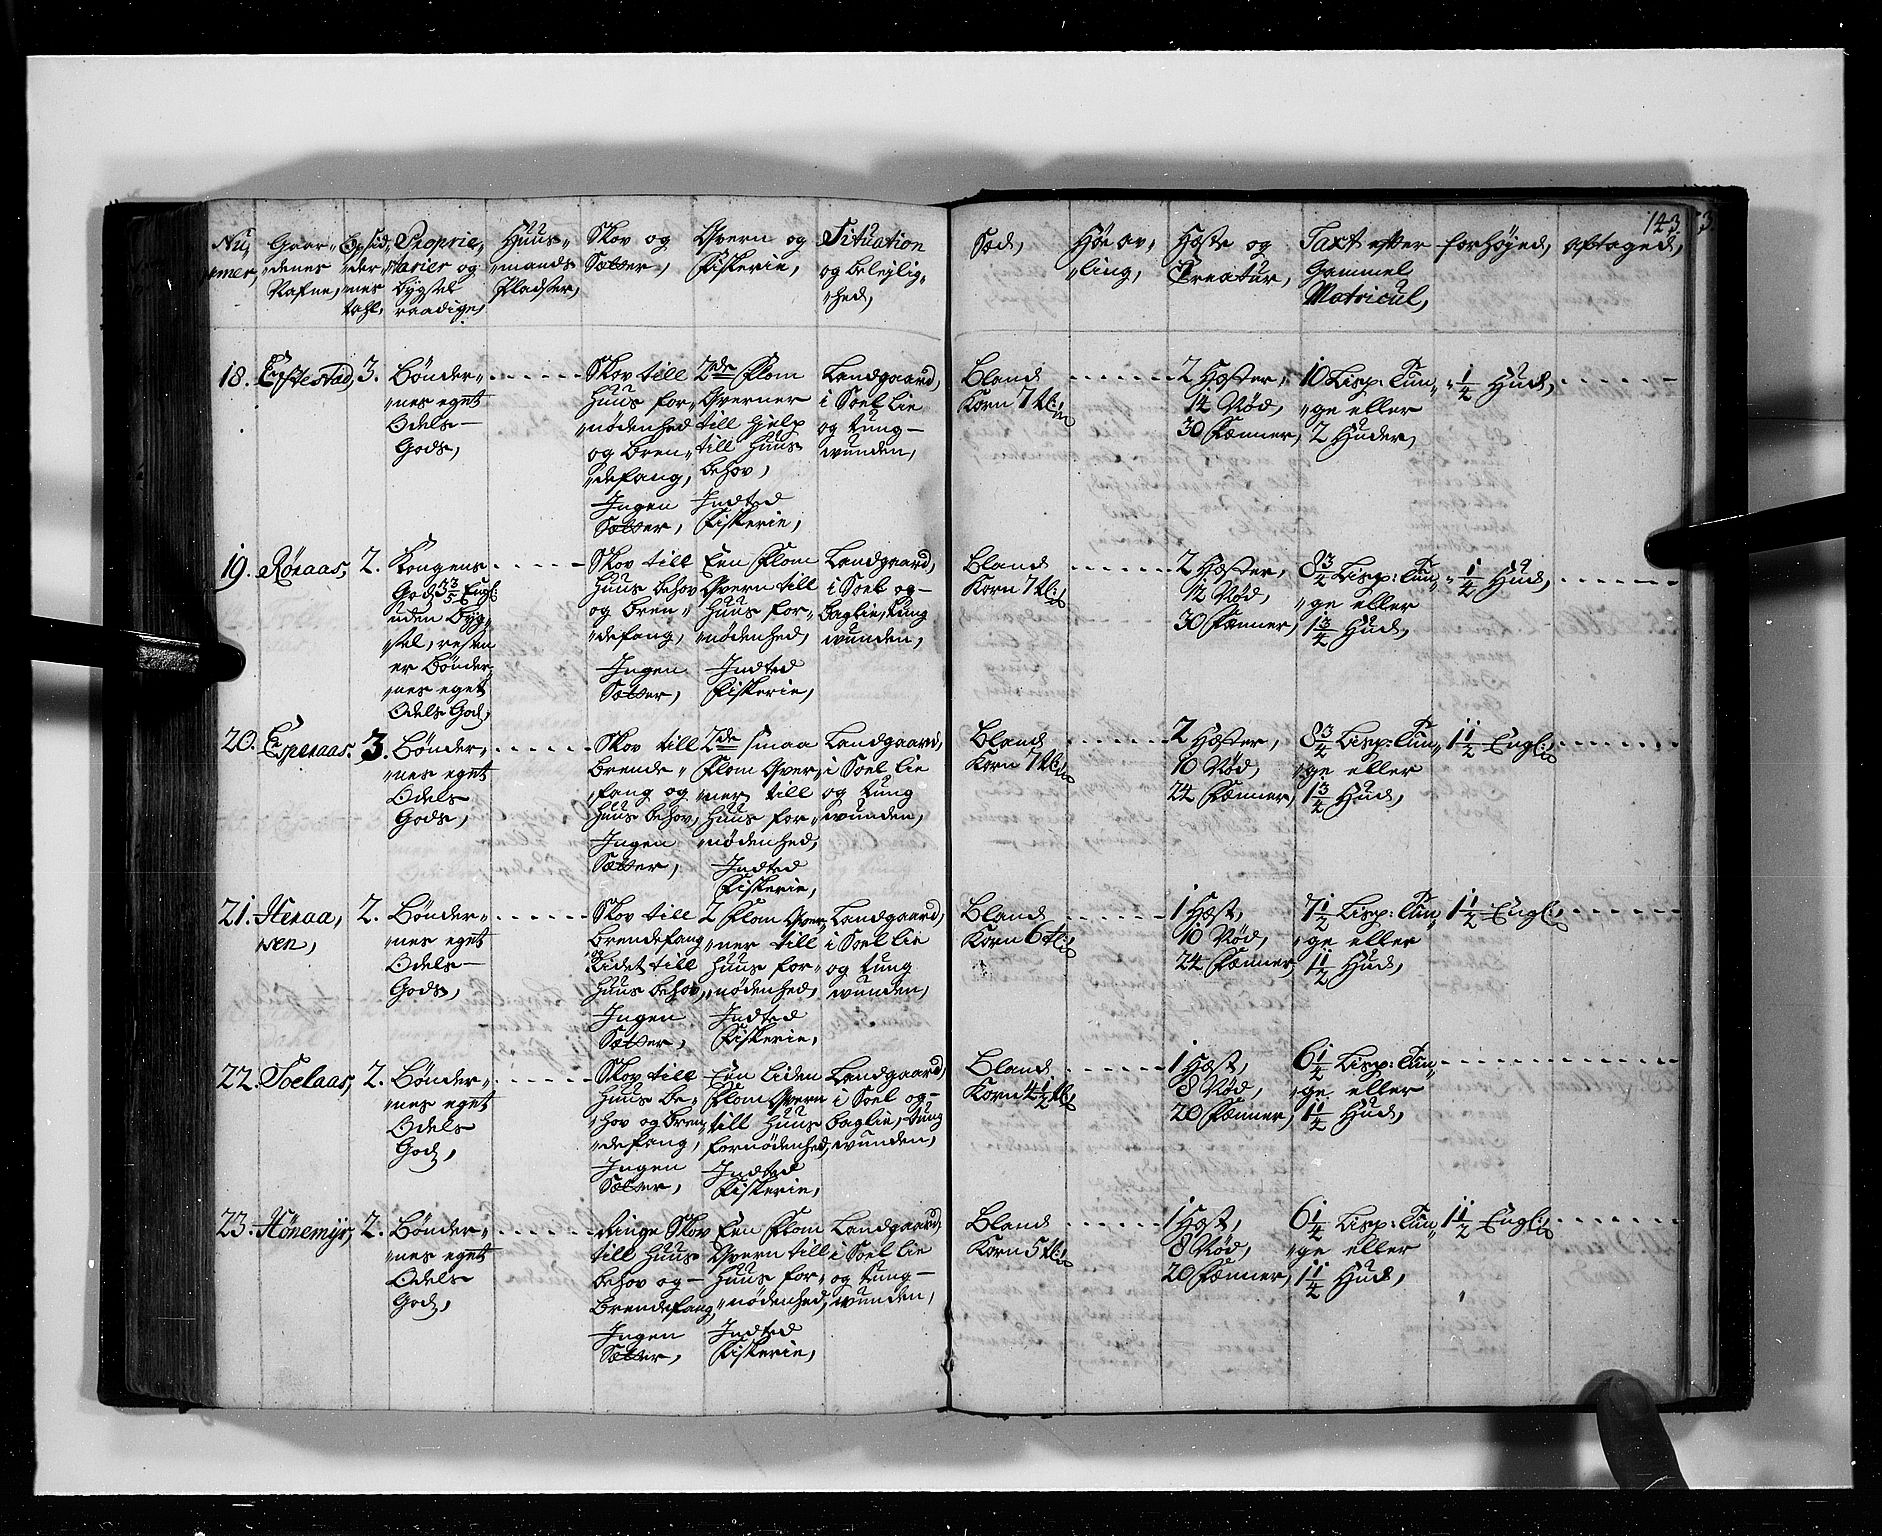 143.
Nu„ mer,
Gaar„ denes Nafne,
Opsid„ der„ nes tahl,
Proprie„ tarier og bygsel raadige,
Huus„ mands Pladser,
Skov og Sætter,
Qvern og Fiskerie,
Situation og belejlig„ hed,
Sæd,
Høe av„ ling,
Hæste og Creatur,
Taxt efter Gammel Matricul,
forhøyed,
aftaged,
18. Eftestad, 3.
Bønder„
nes eget
Odels
Gods,
Skov till
Huus for„
nødenhed
og Bren„
defang,
Ingen
Sætter,
2de Flom
Qverner
till hjelp
till Huus
behov,
Indted
Fiskerie,
Landgaard,
i Soel lie
og tung
wunden,
Bland
Korn 7 tl:
2 Hæster,
14 Nød,
30 Fænner,
10 Lisp: Tun„
ge eller
2 Huder,
1/4 Hud,
19. Røraas, 2.
Kongens
God 3 3/5 Engl:
uden Byg„
sel, resten
er Bønder„
nes eget
Odels God,
Skov till
Huus behov
og Bren„
defang,
Ingen
Sætter,
Een Flom
Qvern till
Huus for„
nødenhed,
Indted
Fiskerie,
Landgaard,
i Soel og
baglie, tung
wunden,
Bland
Korn 7 tl:
2 Hæster,
12 Nød,
30 Fænner,
8 3/4 Lisp: Tun„
ge eller
1 3/4 Hud,
1/4 Hud,
20. Egeraas. 3.
Bønder„
nes eget
Odels
Gods,
Skov till
Brende„
fang og
Huus behov,
Ingen
Sætter,
2de smaa
Flom Qver„
ner till
Huus for„
nødenhed,
Indted
Fiskerie,
Landgaard,
i Soel lie
og tung
wunden,
Bland
Korn 7 tl:
2 Hæster,
10 Nød,
24 Fænner,
8 3/4 Lisp: Tun„
ge eller
1 3/4 Hud,
1 1/2 Engl:
21. Heraa, 2.
wen,
Bønder„
nes eget
Odels
Gods,
Skov till
Brendefang
og Lidet till
Huus behov,
Ingen
Sætter,
2 Flom Qver„
ner till
Huus for„
nødenhed,
Indted
Fiskerie,
Landgaard,
i Soel lie
og tung
wunden,
Bland
Korn 6 tl:
1 Hæst,
10 Nød,
24 Fænner,
7 1/2 Lisp: Tun„
ge eller
1 1/2 Hud,
1 1/2 Engl:
22. Toelaas, 2.
Bønder„
nes eget
Odels
God,
Skov till
Huus be„
hov og Bren„
defang,
Ingen
Sætter,
Een Liden
Flom Qvern
till Huus
fornødenhed,
Indted
Fiskerie,
Landgaard,
i Soel og
baglie, tung
wunden,
Bland
Korn 4 1/2 tl:
1 Hæst,
8 Nød,
20 Fænner,
6 1/4 Lisp: Tun„
ge eller
1 1/4 Hud,
23. Hønemyr, 2.
Bønder„
nes eget
Odels
God,
Ringe Skov
till Huus
behov og
Brendefang,
Ingen
Sætter,
Een Flom
Qvern till
Huus for„
nødenhed,
Indted
Fiskerie,
Landgaard,
i Soel lie
og tung
wunden,
Bland
Korn 5 tl:
1 Hæst,
8 Nød,
20 Fænner,
6 1/4 Lisp: Tun„
ge eller
1 1/4 Hud,
1 1/2 Engl: